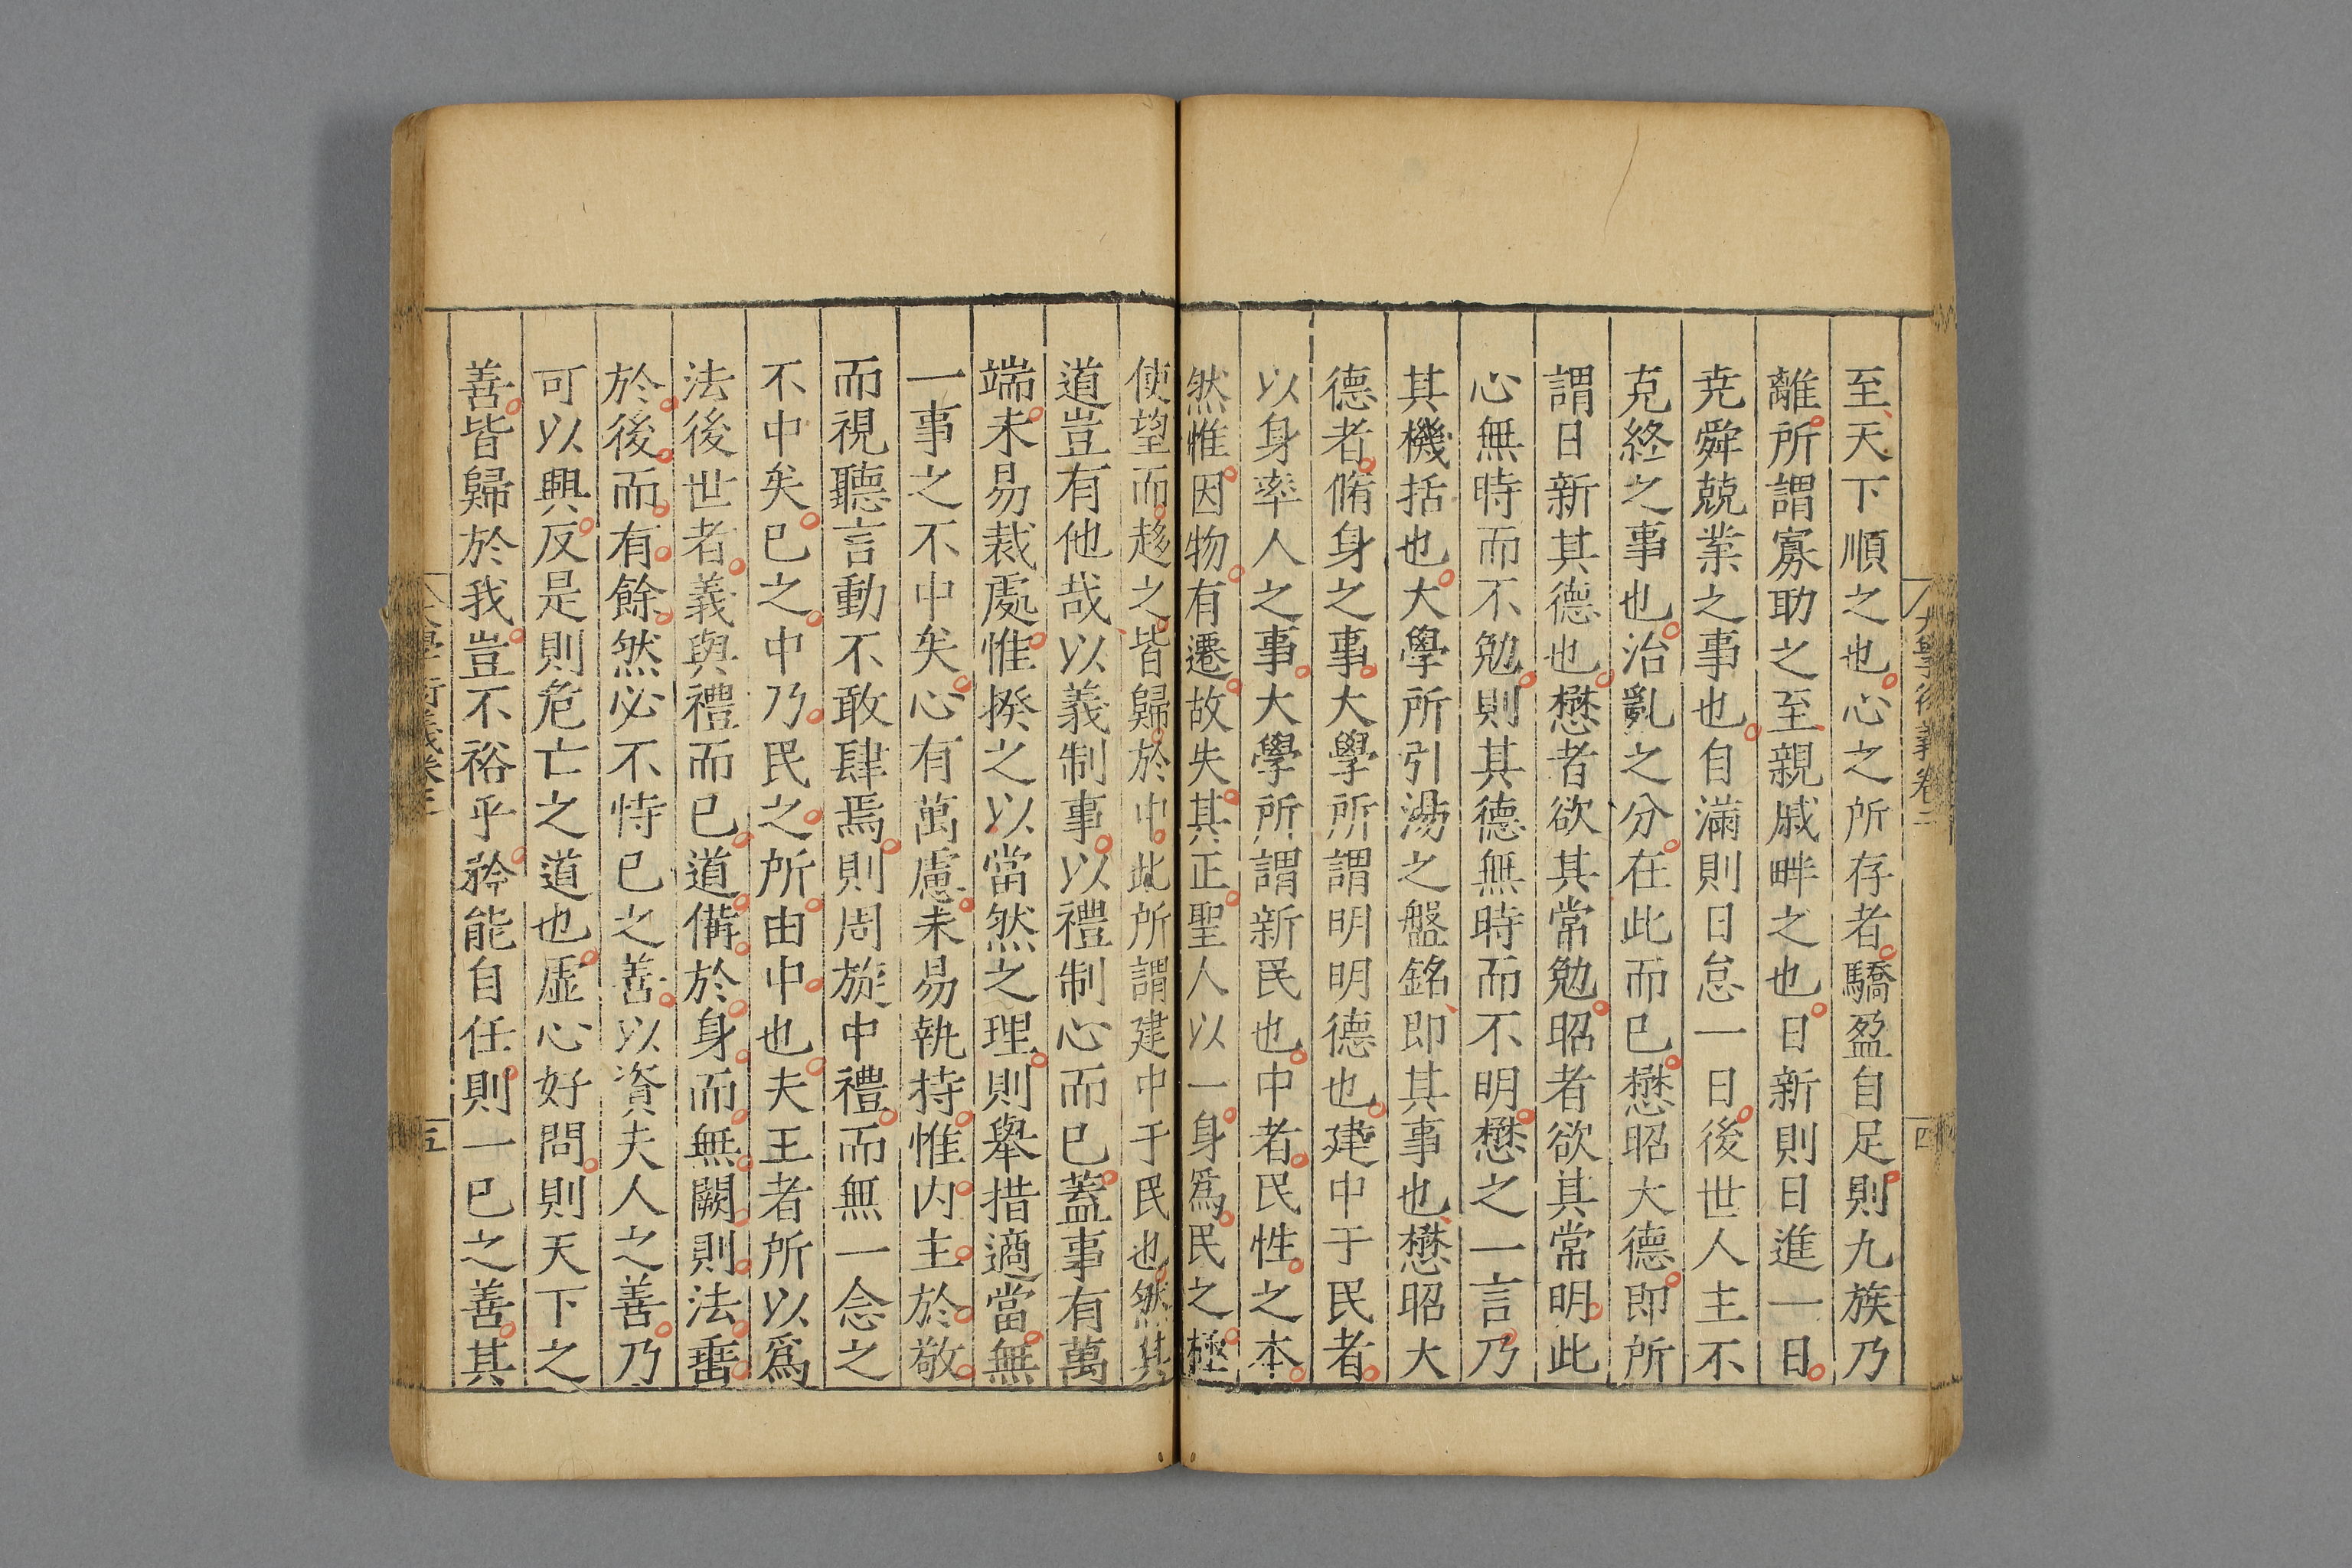 大學衍義卷二
四
至天下順之也心之所存者驕盈自足則九族乃
離所謂寡助之至親戚畔之也日新則日進一日
尭舜兢業之事也自滿則日怠一日後世人主不
克終之事也治亂之分在此而已懋昭大德即所
謂日新其德也懋者欲其常勉昭者欲其常明此
心無時而不勉則其德無時而不明懋之一言乃
其機括也大學所引湯之盤銘即其事也懋昭大
德者脩身之事大學所謂明明德也建中于民者
以身率人之事大學所謂新民也中者民性之本
然惟因物有遷故失其正聖人以一身爲民之極
使望而趍之皆歸於中此所謂建中于民也然其
道豈有他哉以義制事以禮制心而已蓋事有萬
端未易裁處惟揆之以當然之理則舉措適當無
一事之不中矣心有萬慮未易執持惟内主於敬
而視聽言動不敢肆焉則周旋中禮而無一念之
不中矣已之中乃民之所由中也夫王者所以爲
法後世者義與禮而已道備於身而無闕則法垂
於後而有餘然必不恃已之善以資夫人之善乃
可以興反是則危亡之道也虛心好問則天下之
善皆歸於我豈不裕乎矜能自任則一已之善其
五